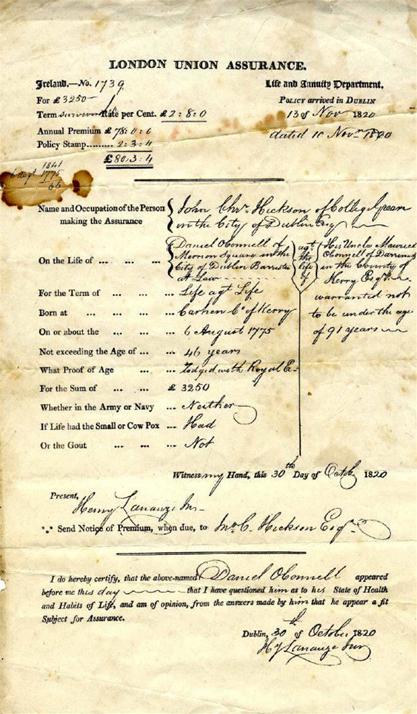 LONDON UNION ASSURANCE.
Ireland.—No. 1739
Life and Annuity Department.
For £3250—
POLICY arrived in DUBLIN
Term Rate per Cent. £2:8:0
13 of Nov 1820
Annual Premium £78:0:0
dated 10 Novr 1820
Policy Stamp........ 2:3:4
£80:3:4
1841
1775
66
Name and Occupation of the Person making the Assurance
John Chrs. Hickson of College Green
in the City of Dublin Esq
On the Life of ... ... ...
Daniel OConnell of
Merrion Square in the
City of Dublin Barrister
at Law
agt the life of
His Uncle Maurice
OConnell of Darrinane
in the County of
Kerry Esqr
warranted not
to be under the age
of 91 years
For the Term of ... ... ... Life agt Life
Born at ... ... ... Carhen Co. of Kerry
On or about the ... ... ... 6 August 1775
Not exceeding the Age of ... ... 46 years
What Proof of Age ... ... lodged with Royal Ex
For the Sum of ... ... ... £ 3250
Whether in the Army or Navy ... Neither
If Life had the Small or Cow Pox ... Had
Or the Gout ... ... ... Not
Witness my Hand, this 30th Day of Octobr 1820
Present,
Henry Lanauze Jnr
Send Notice of Premium, when due, to Mr. C. Hickson Esqr
I do hereby certify, that the above-named Daniel OConnell appeared
before me this day that I have questioned him as to his State of Health
and Habits of Life, and am of opinion, from the answers made by him that he appear a fit
Subject for Assurance.
Dublin, 30th of October 1820
Hy Lanauze Jnr